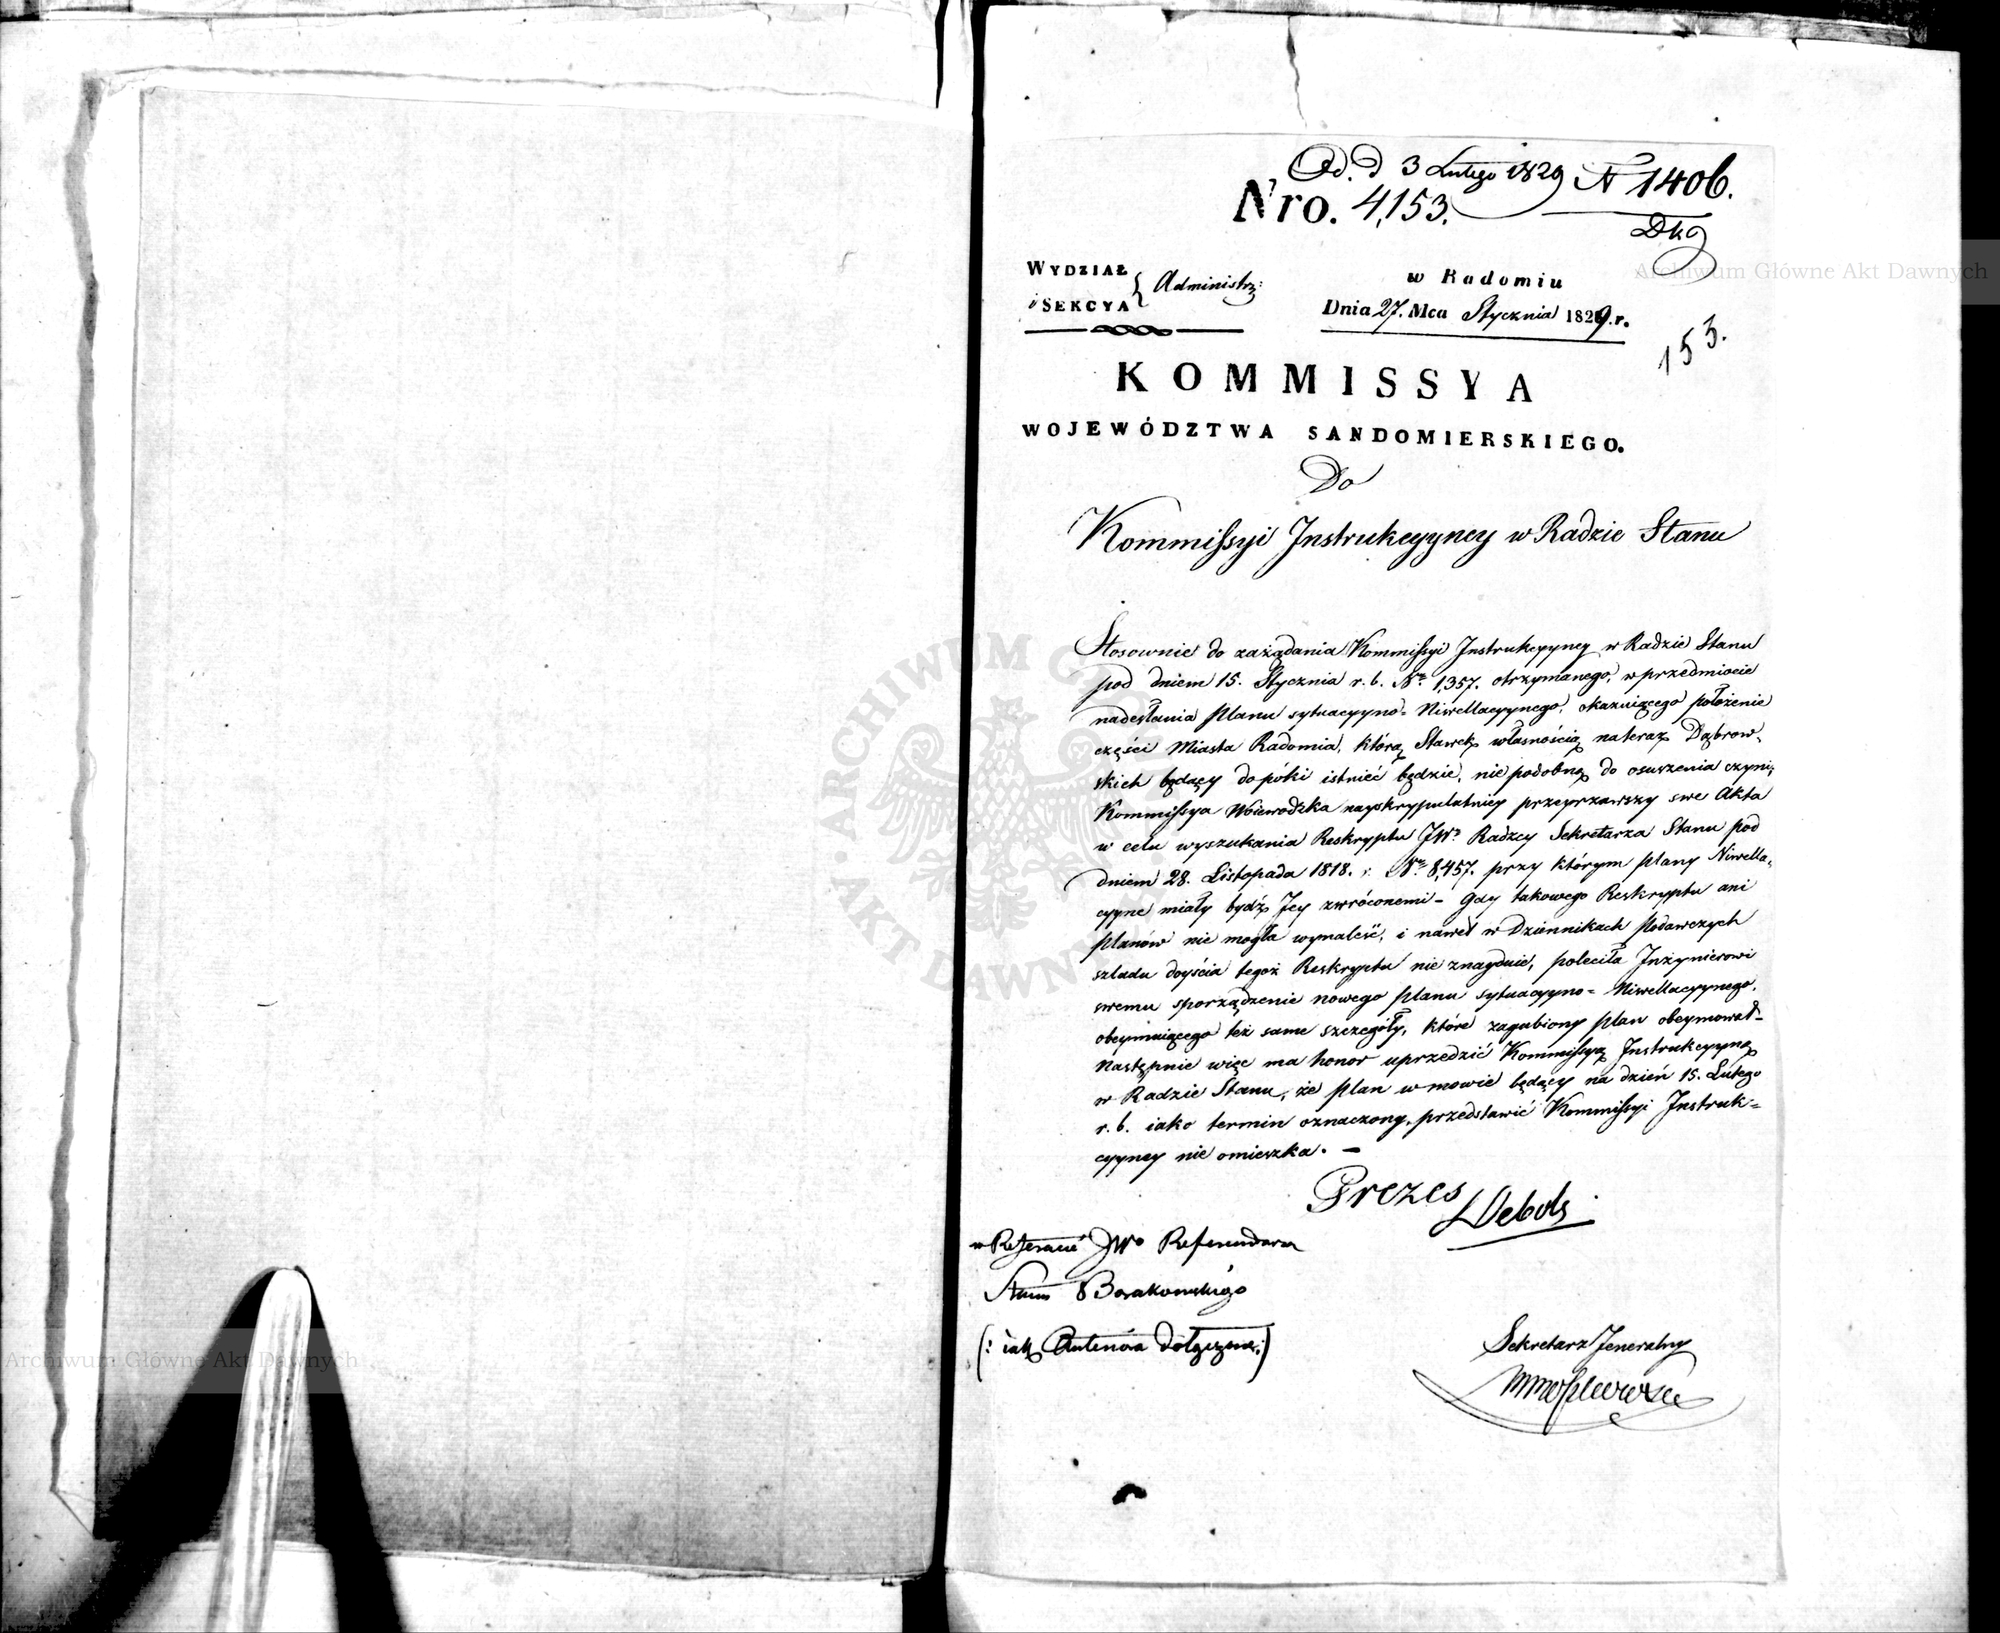 Od. d 3 Lutego 1829 N 1406.
Nro. 4,153.
Dkg
WYDZIAŁ
i SEKCYA } Administr:
w Radomiu
Dnia 27. Mca Stycznia 1829.r.
153.
KOMMISSYA
WOJEWÓDZTWA SANDOMIERSKIEGO.
Do
Kommissyi Instrukcyyney w Radzie Stanu
Stosownie do zażądania Kommissyi Instrukcyyney w Radzie Stanu
pod dniem 15. Stycznia r. b. Nr. 1,357. otrzymanego, w przedmiocie
nadesłania planu sytuacyyno=Niwellacyynego, okazuiącego położenie
części Miasta Radomia, którą Stawek własnością na teraz Dąbrow-
skich będący dopóki istnieć będzie, nie podobną do osuszenia czyni,
Kommissya Woiewódzka nayskrypulatniey przeyrzawszy swe Akta
w celu wyszukania Reskryptu JWo Radzcy Sekretarza Stanu pod
dniem 28. Listopada 1818. r. Nr. 8,457. przy którym plany Niwella-
cyyne miały bydź Jey zwróconemi – Gdy takowego Reskryptu ani
planów nie mogła wynaleść, i nawet w Dziennikach Podawczych
szladu doyścia tegoż Reskryptu nie znayduie, poleciła Inżynierowi
swemu sporządzenie nowego planu sytuacyyno=Niwellacyynego,
obeymuiącego też same szczegóły, które zagubiony plan obeymował –
Następnie więc ma honor uprzedzić Kommissyą Instrukcyyną
w Radzie Stanu, że plan w mowie będący na dzień 15. Lutego
r. b. iako termin oznaczony, przedstawić Kommissyi Instruk=
cyyney nie omieszka. –
Prezes
Deboli
w Referacie JWo Referendarza
Stanu Borakowskiego
(: iak dołączone:)
Sekretarz Jeneralny
Archiwum Główne Akt Dawnych
Archiwum Główne Akt Dawnych
ARCHIWUM GŁÓWNE AKT DAWNYCH